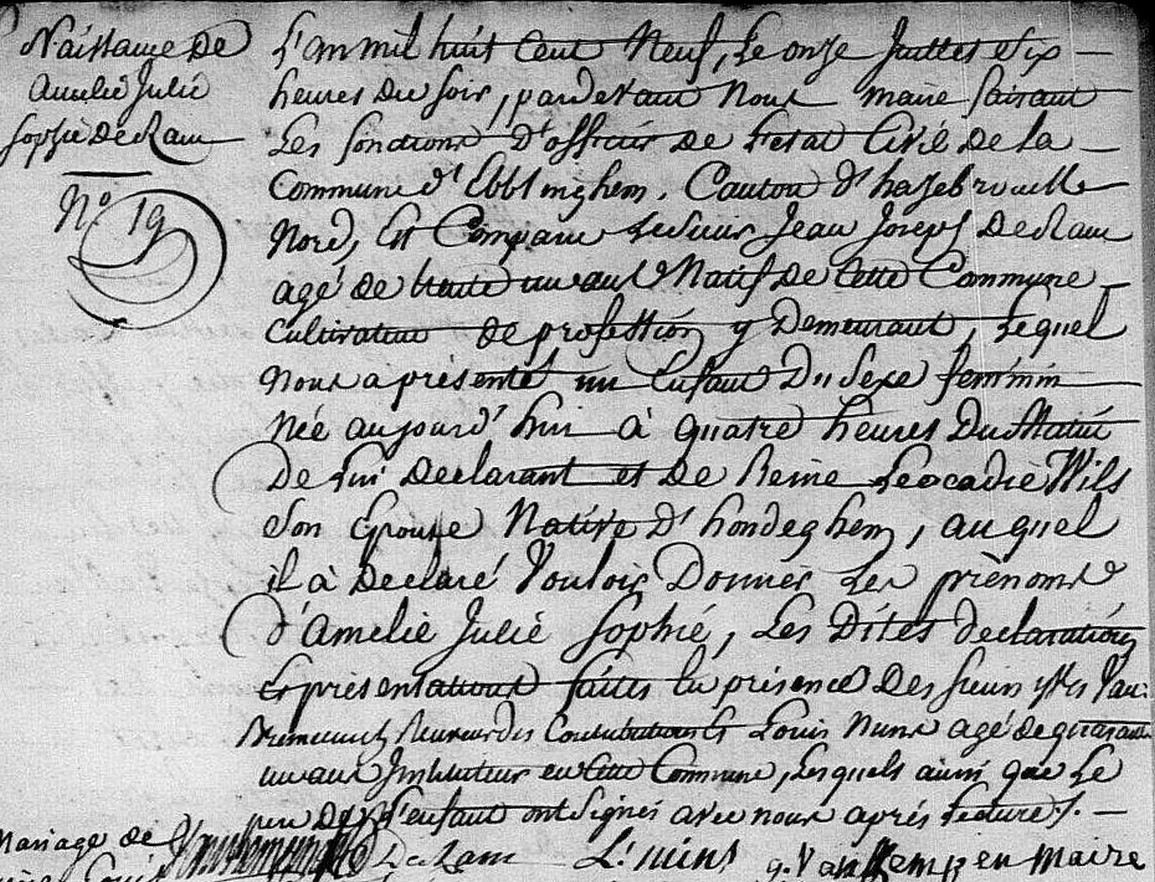 Naissance De
Amelie Julie
Sophie DeRam
N° 19
L'an mil huit Cent Neuf, Le onze Juillet Six
heures du soir, pardevant Nous maire faisant
Les fonctions D'officier De L'etat Civil De La
Commune d'Ebblinghem, Canton d'hazebrouck
Nord, Est Comparu Le Sieur Jean Joseph DeRam
agé de trente un ans Natif De Cette Commune
Cultivateur de profession y Demeurant, Lequel
Nous a présenté un Enfant Du Sexe feminin
Née aujourd'hui à quatre heures Du Matin
De Lui Declarant et De Reine Leocadie Wils
Son Epouse Native D'hondeghem, auquel
il à Declaré Vouloir Donner Les prénoms
d'Amelie Julie Sophie, Les Dites declarations
Et présentations faites En présence Des Sieurs Van
des Contributions Et Louis Nuns agé de quarante
un ans Instituteur en Cette Commune, Lesquels ainsi que Le
pere De L'enfant ont Signés avec nous aprés Lecture
Mariage de
DeRam L. nuns maire